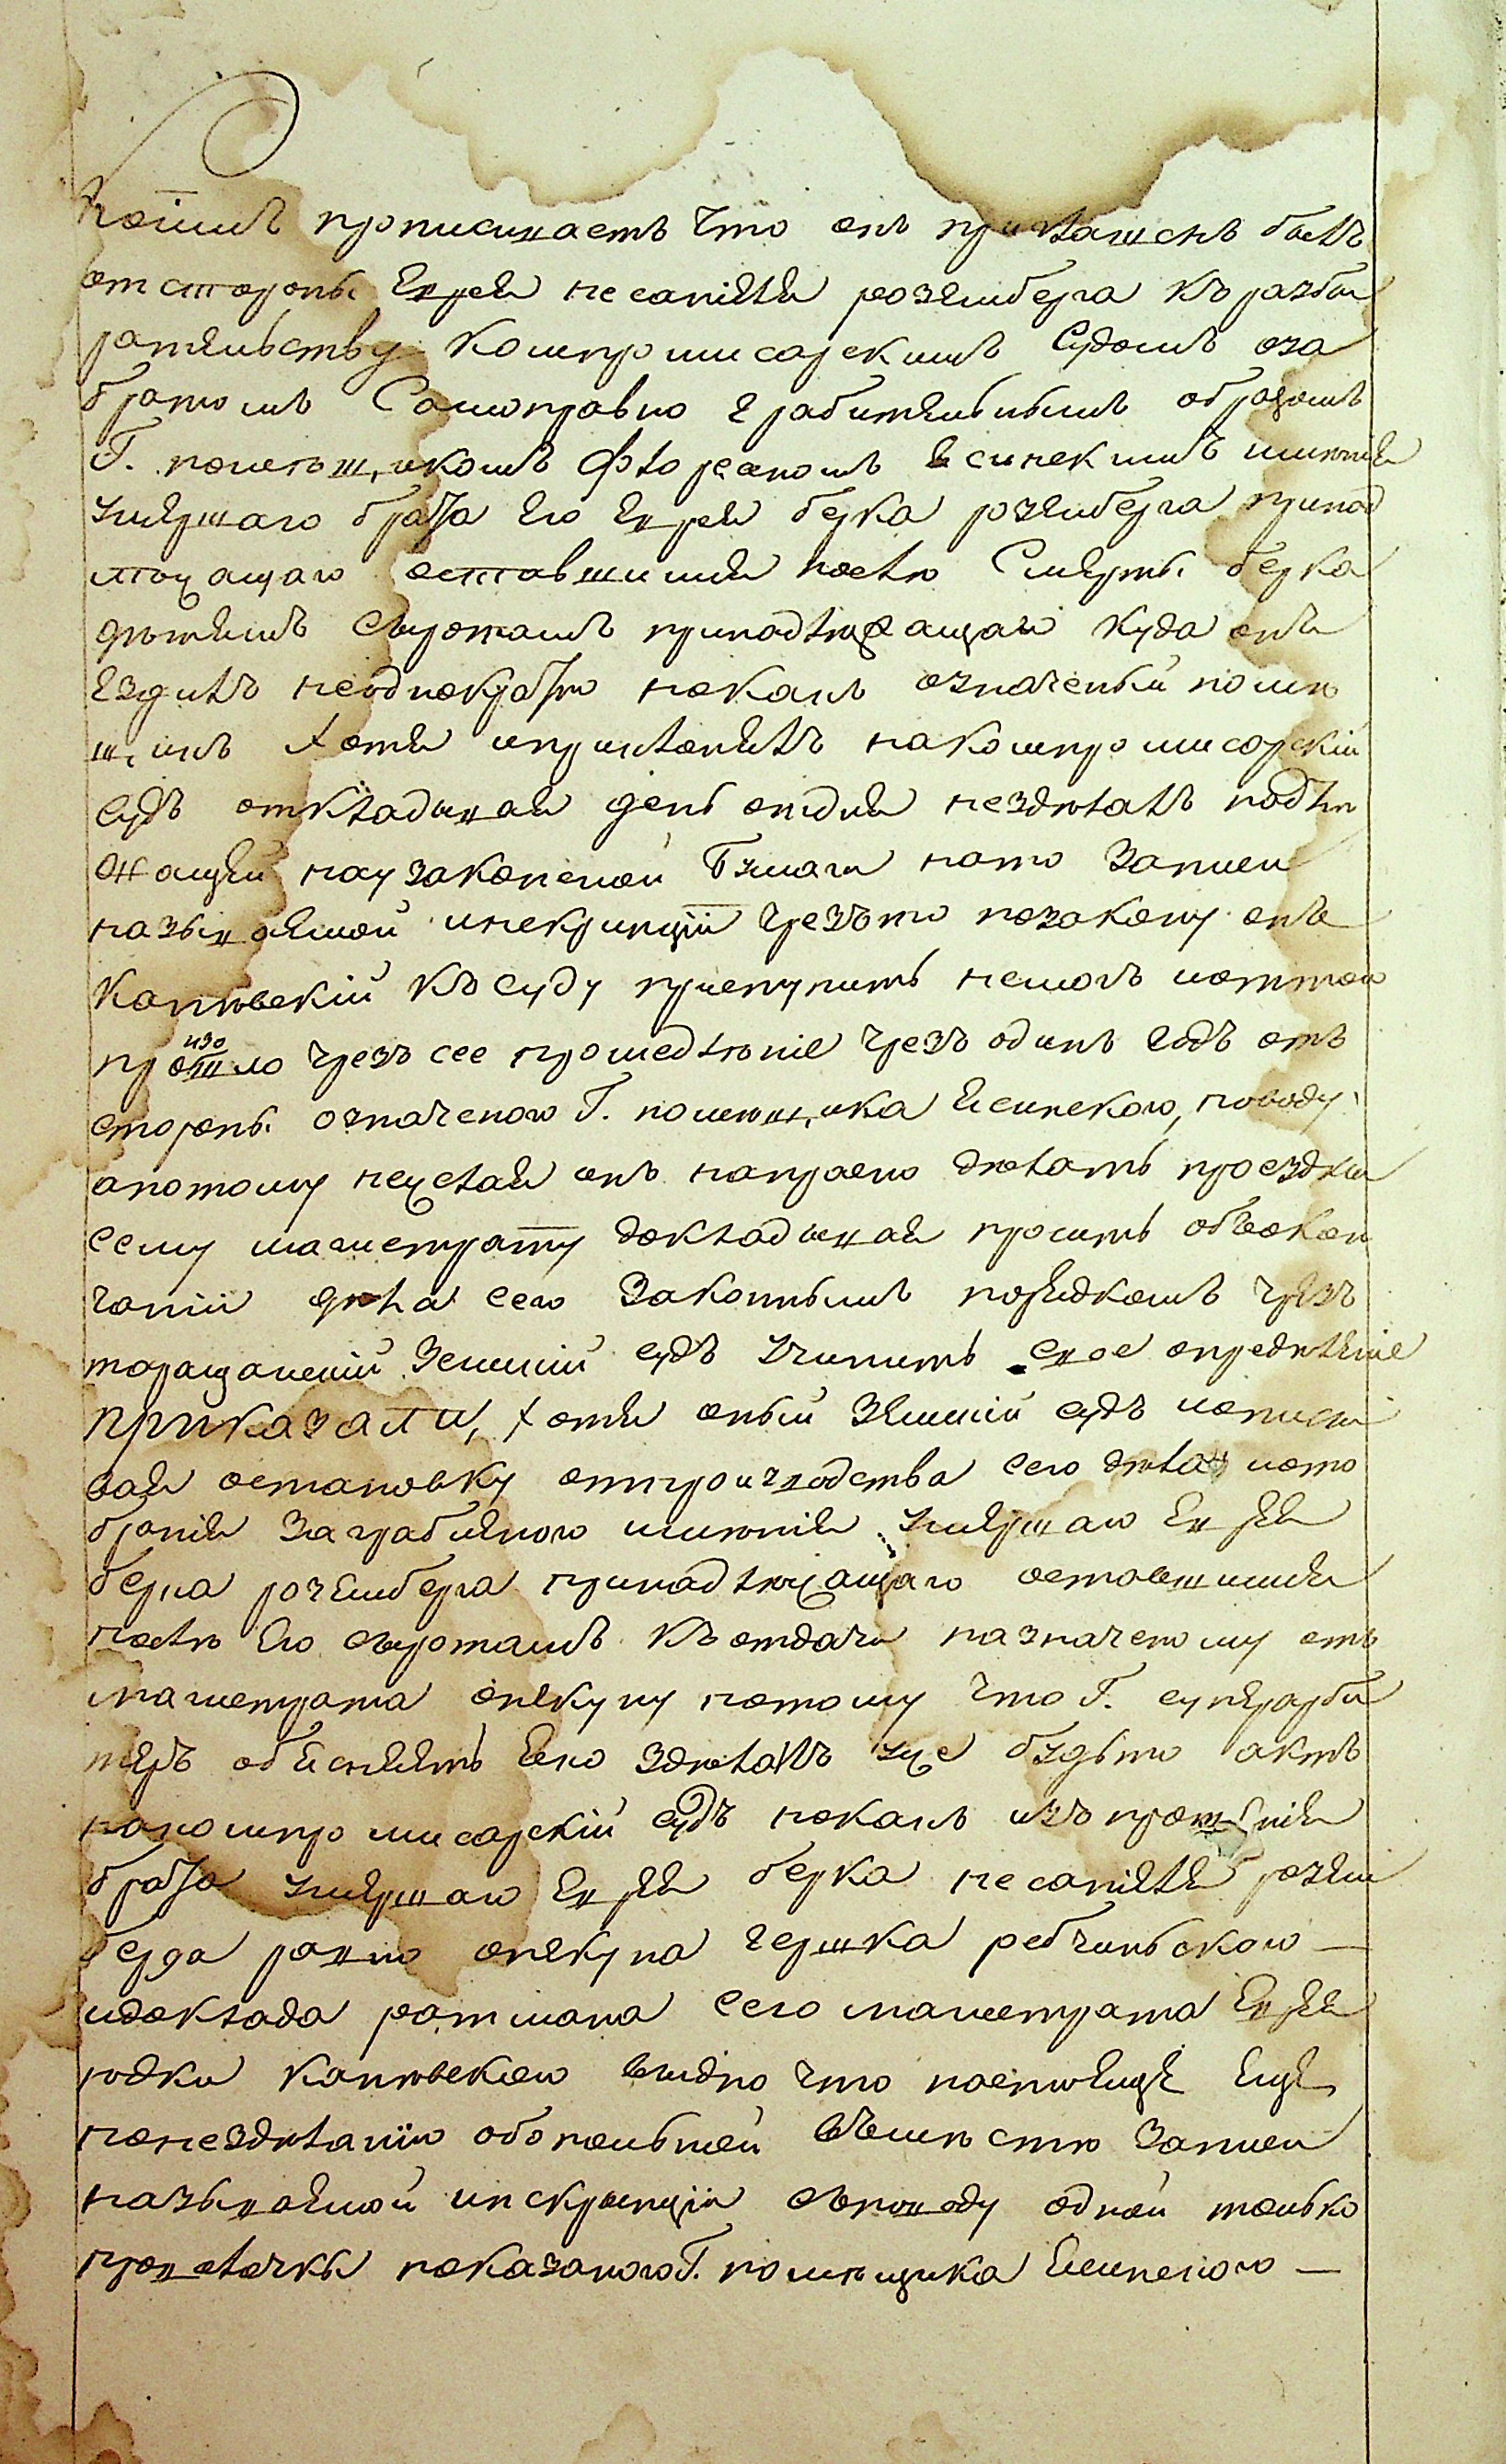 коимъ прописиваетъ что онъ приглашенъ былъ
отстороны Еврея несаніеля розенберга къ разби
рательству компромисарскимъ Судомъ оза
братомъ Самоправно грабительнымъ образомъ
Г. помещикомъ Флореаномъ Есинскимъ имѣнія
умершаго брата Его Еврея берка розенберга принад
лежащаго оставшимся после Смерты берка
дѣтямъ сыротамъ принадлежащаго куда онъ
ездилъ неоднократно нокакъ означеный помѣ
щикъ хотя ипристоялъ накомпромисарскій
Судъ откладывая день отдня нездѣлалъ надлѣ
жащей наузаконеной бумаги нато Записи
називаемой инскрипціи чрезъто позакону онъ
каплѣвскій къ суду приступить немогъ иоттого
произошло чрезъ сее промедлѣніе чрезъ одинъ годъ отъ
стороны означеного Г. помѣщика Есинского, поводу
апотому нежелая онъ напрасно дѣлать проездки
сему магистрату докладывая просить обокон
чаніи дѣла сего Законнымъ порядкомъ чрезъ
таращанскій Земскій судъ учинить свое определѣніе
приказали, хотя оный Земскій судъ иописи
вая остановку отпроизводства сего дѣла иото
браніи Заграбленого имѣнія умершаго Еврея
берка розенберга принадлежащаго оставшимся
после Его сыротамъ къ отдачи назначеному отъ
магистрата опекуну потому что Г. суперарби
теръ обясняетъ Бено здѣлалъ уже будьто актъ
накомпромисарскій судъ нокакъ изъ прошенія
брата умершаго Еврея берка несаніеля розен
берга равно опекуна гершка ребчинского —
идоклада ратмана сего магистрата Еврея
юдки каплѣвского видно что поспоемуже Еще
понездѣланію обополной вѣместе Записи
називаемой инскрыпціи споводу одной только
проволочки показаного Г. помѣщика Есинского —